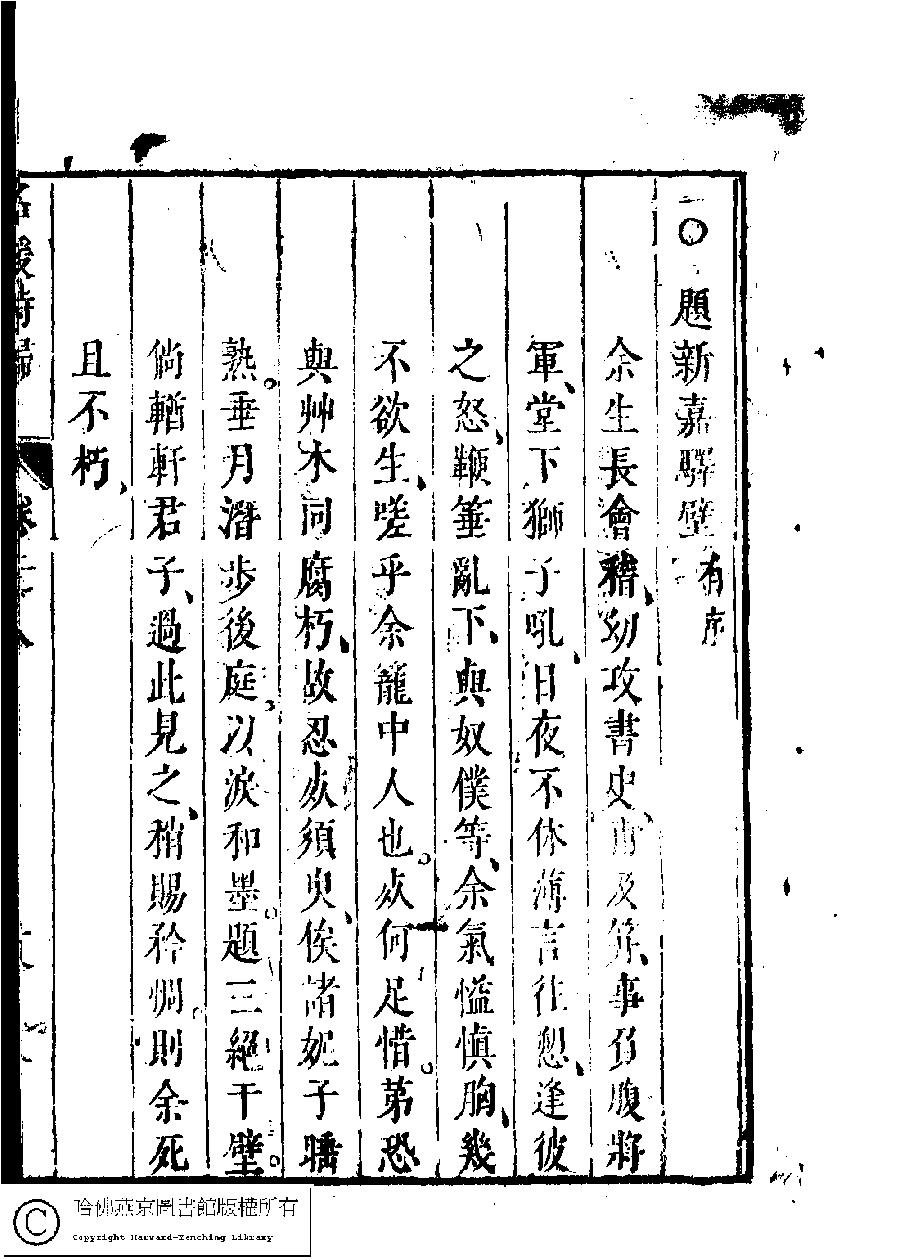 〇題新嘉驛壁有序
余生長會稽、幼攻書史、甫及笄、事負腹將
軍、堂下獅子吼、日夜不休薄言往愬、逢彼
之怒、鞭箠亂下、與奴僕等、余氣愾慎胸、幾
不欲生、嗟乎余籠中人也。奻何足惜。第恐
與艸木同腐朽、故忍奻須臾、俟諸妮子𥆧
熟。垂月潛步後庭。以淚和墨。題三絕于壁。
倘輶軒君子、過此見之、稍賜矜憫則余死
且不朽、
名媛詩歸
卷二十八
哈佛燕京圖書館版權所有
Copyright Harvard-Yenching Library